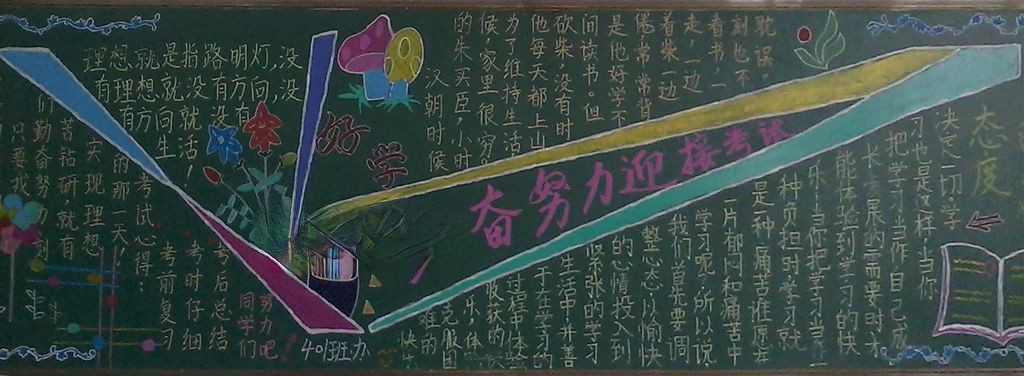 理想就是指路明灯,没
有理想就没有方向,没
有方向就没有
生活!
苦钻研,就有
实现理想
的那一天!
考试心得:
考前复习
考时仔细
考后总结
同学们
努力吧!
401班办
好学
汉朝时候
的朱买臣,小时
候,家里很穷。
为了维持生活
他每天都上山
砍柴,没有时
间读书。但
是他好学不
倦,常常背
着柴一边
走,一边
看书,一
刻也不
耽误。
奋努力迎接考试
态度
决定一切,学
习也是这样,当你
把学习当作自己成
长发展的需要时,才
能体验到学习的快
乐!当你把学习当
一种负担时,学习就
是一种痛苦,谁愿在
一片郁闷和痛苦中
学习呢,所以说,
我们首先要调
整心态,以愉快
的心情投入到
紧张的学习
生活中,并善
于在学习的
过程中体验
收获的快
乐,体